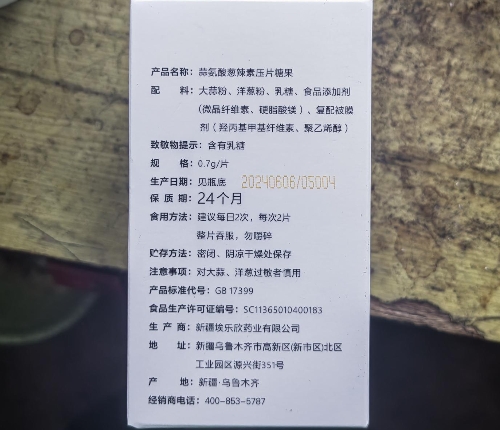 产品名称：蒜氨酸葱辣素压片糖果
配　　料：大蒜粉、洋葱粉、乳糖、食品添加剂
（微晶纤维素、硬脂酸镁）、复配被膜
剂（羟丙基甲基纤维素、聚乙烯醇）
致敏物提示：含有乳糖
规　　格：0.7g/片
生产日期：见瓶底 20240606/05004
保 质 期：24个月
食用方法：建议每日2次，每次2片
整片吞服，勿咀碎
贮存方法：密闭、阴凉干燥处保存
注意事项：对大蒜、洋葱过敏者慎用
产品标准代号：GB 17399
食品生产许可证编号：SC11365010400183
生 产 商：新疆埃乐欣药业有限公司
地　　址：新疆乌鲁木齐市高新区(新市区)北区
工业园区源兴街351号
产　　地：新疆·乌鲁木齐
经销商电话：400-853-5787